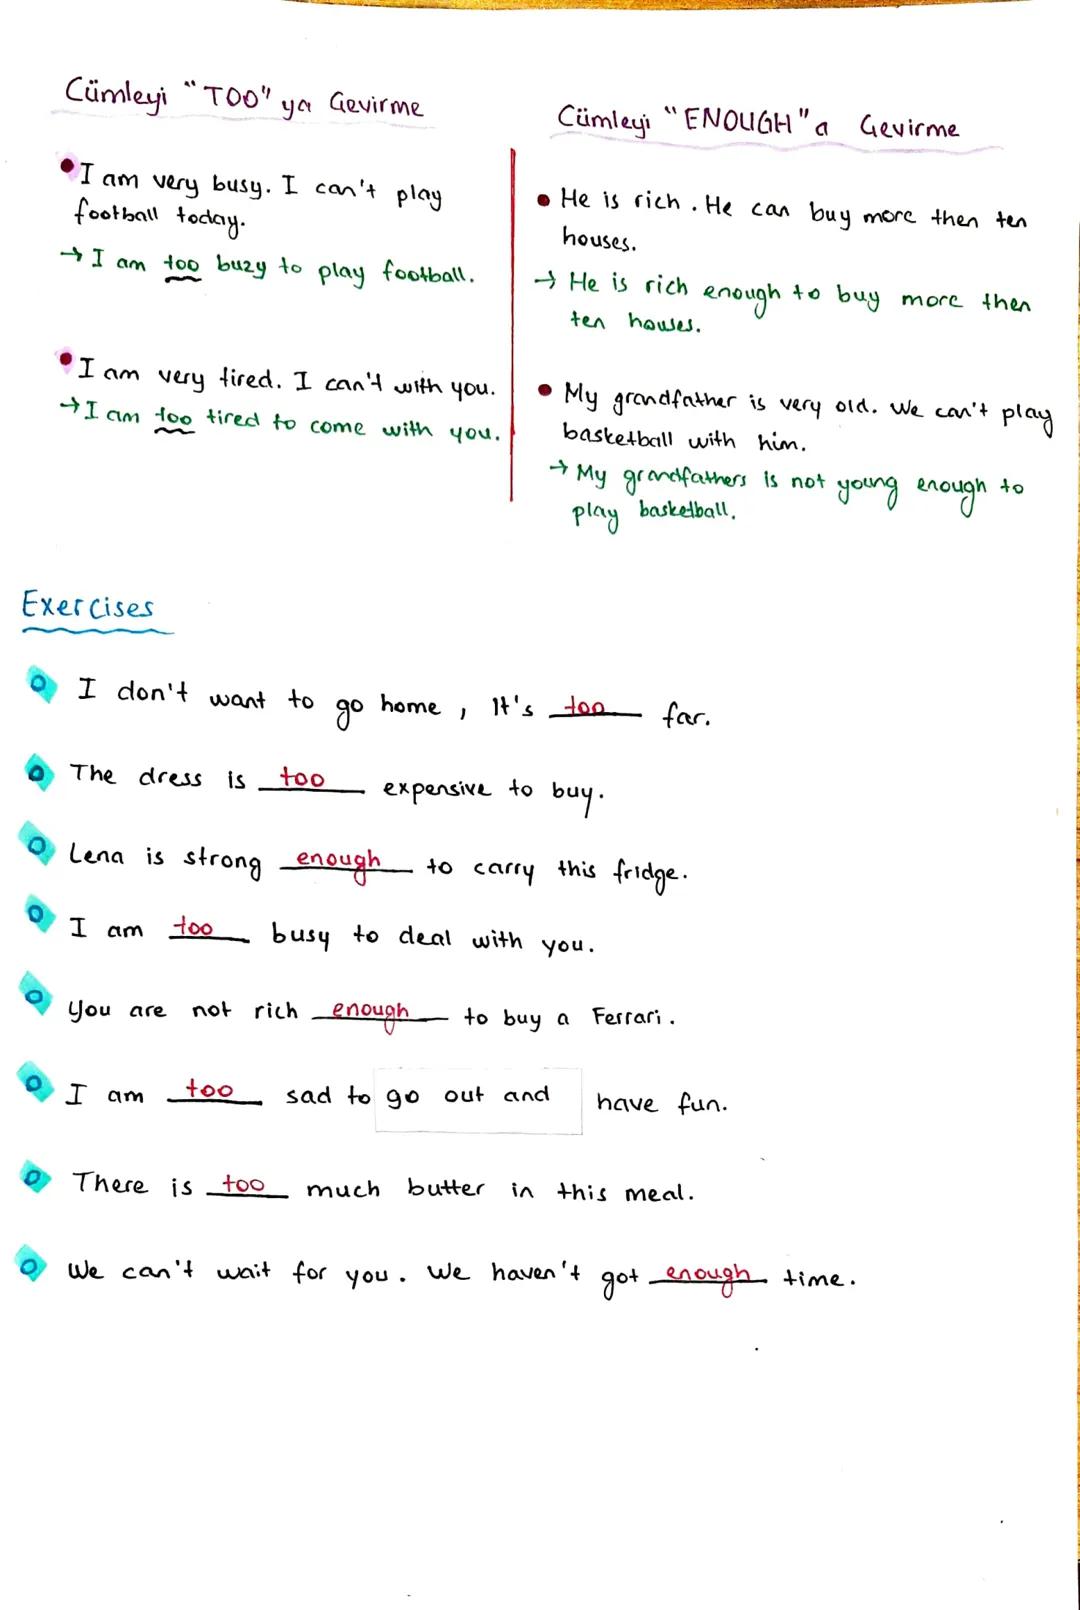 Cümleyi "TOO" ya Çevirme
• I am very busy. I can't play
football today.
→ I am too buzy to play football.
• I am very tired. I can't with you.
→ I am too tired to come with you.
Cümleyi "ENOUGH" a Çevirme
• He is rich. He can buy more then ten
houses.
→ He is rich enough to buy more then
ten houses.
• My grandfather is very old. We can't play
basketball with him.
→ My grandfathers is not young enough to
play basketball.
Exercises
I don't want to go home, It's too far.
The dress is too expensive to buy.
Lena is strong enough to carry this fridge.
I am too busy to deal with you.
You are not rich enough to buy a Ferrari.
I am too sad to go out and have fun.
There is too much butter in this meal.
We can't wait for you. We haven't got enough time.